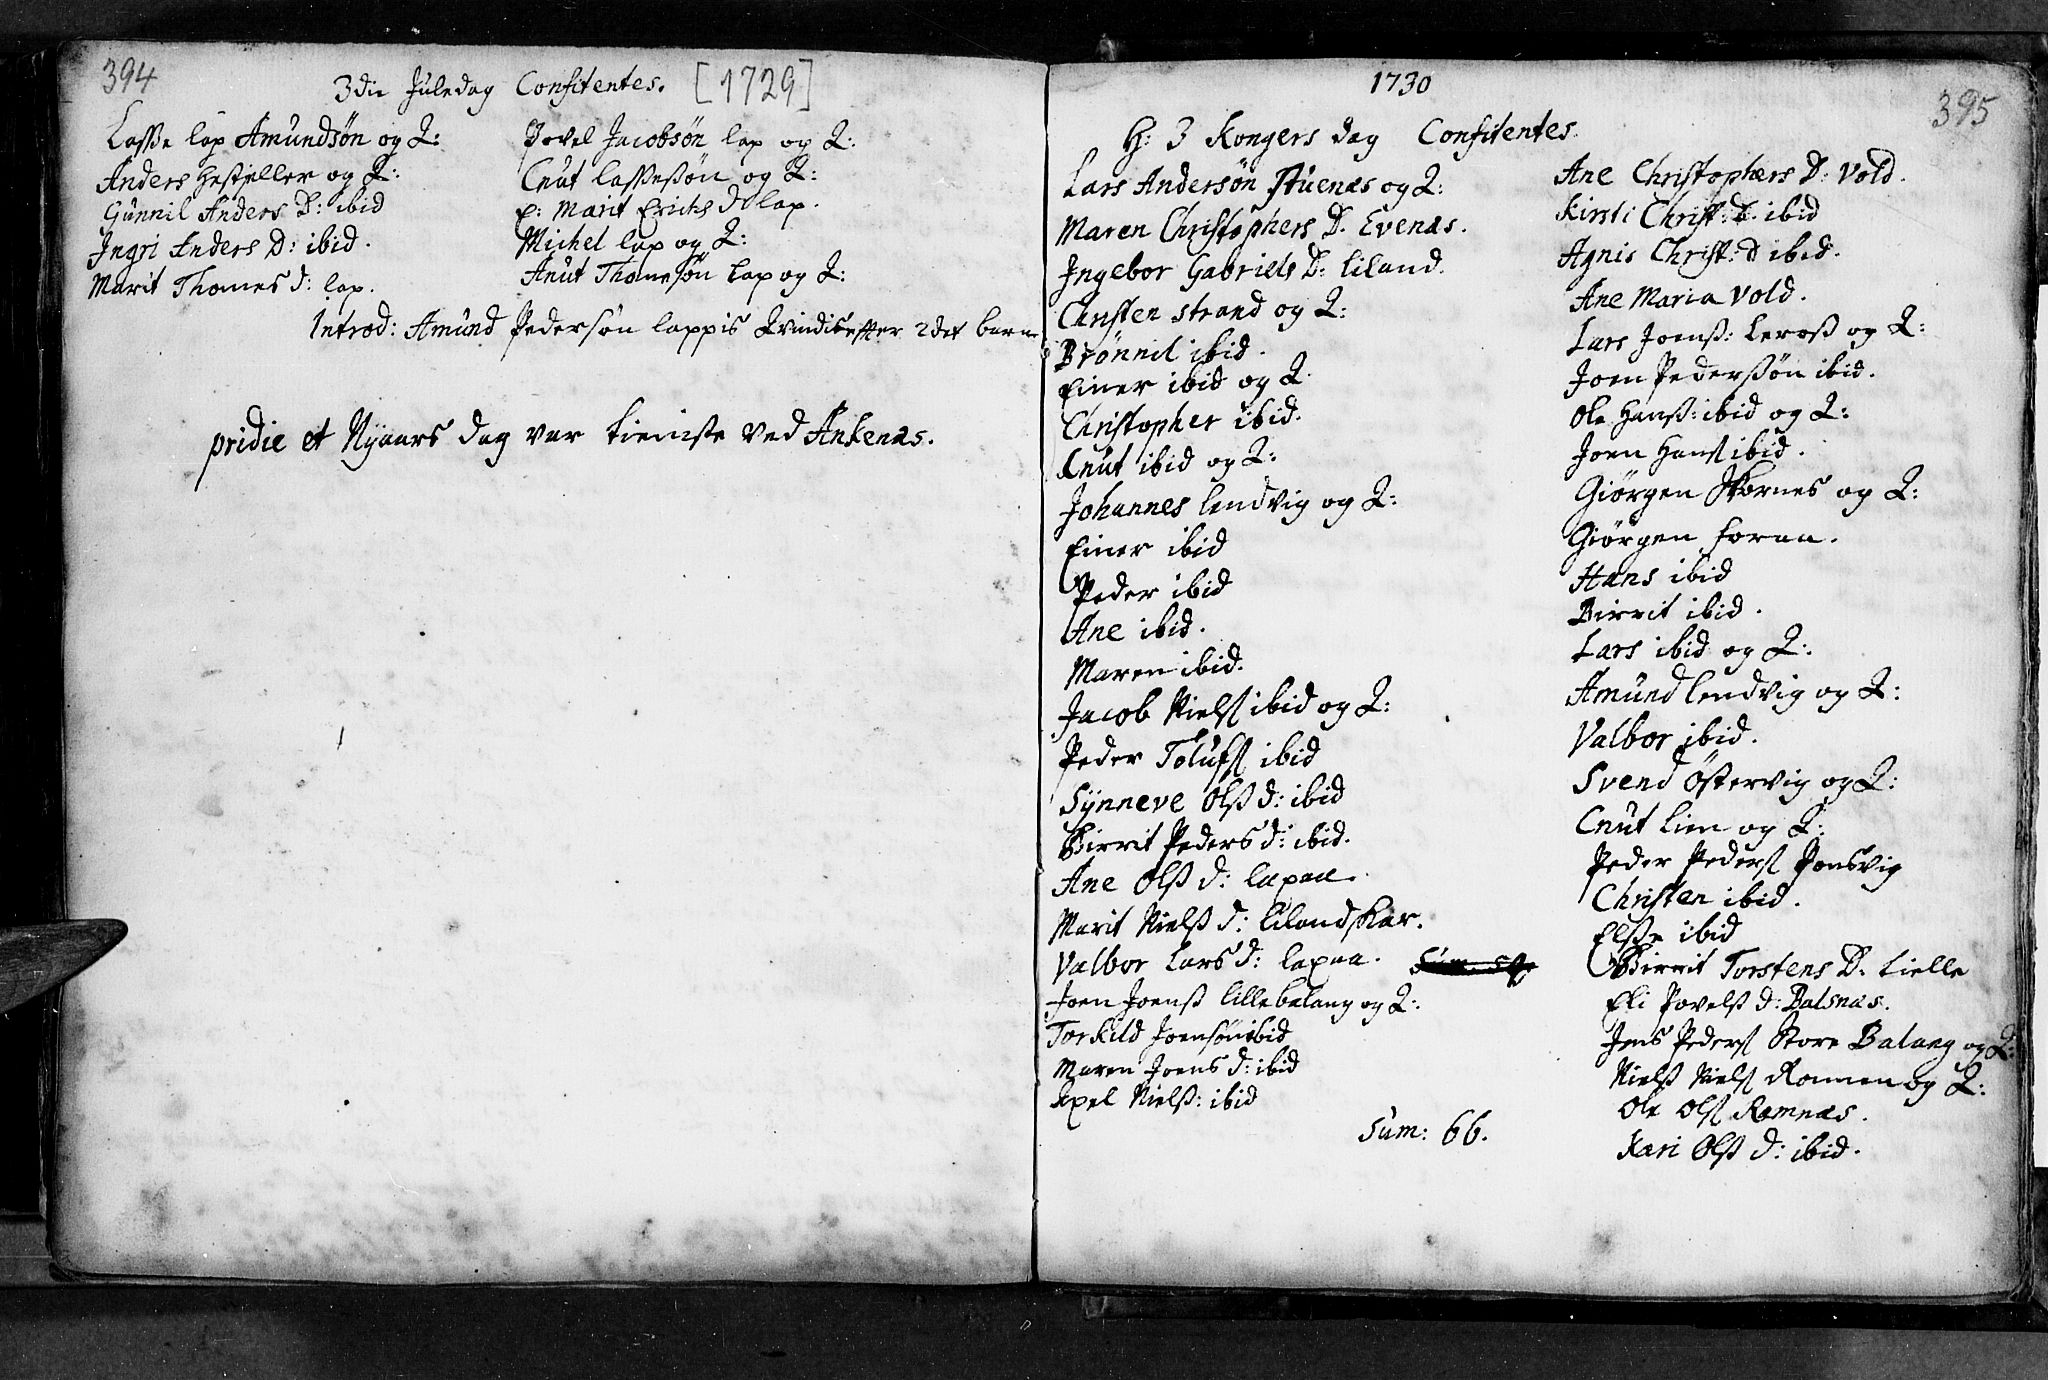 394
3die Juledag Confitentes. [1729]
Lasse lap Amundsøn og Q:
Anders Hestfeller og Q:
Gunnil Anders D: ibid
Ingri Anders D: ibid.
Marit Thomes d: lap.
Povel Jacobsøn lap og Q:
Cnut Lassesøn og Q:
p: Marit Erichs D lap.
Michel lap og Q:
Knut Thomesøn Lap og Q:
Introd: Amund Pedersøn lappis Qvinde efter 2det barn
pridie et Nyaars dag var tieniste ved Ankenæs.
395
1730
H: 3 Kongers dag Confitentes.
Lars Andersøn Stuenæs og Q:
Maren Christophers D. Evenæs.
Ingebor Gabriels D: Liland.
Christen Strand og Q:
Brønnil ibid.
Einer ibid og Q.
Christopher ibid.
Cnut ibid og Q:
Johannes Lendvig og Q:
Einer ibid
Peder ibid
Ane ibid.
Maren ibid.
Jacob Niels ibid og Q:
Peder Tolufs ibid
Synneve Olß d: ibid
Birrit Peders d: ibid.
Ane Olß d: Lapaa.
Marit Nielß d: Lilandskar.
Valbor Lars d: Lapaa.
Joen Joenß Lillebalang og Q:
Torkild Joensøn ibid
Maren Joens d: ibid
Axel Nielß: ibid
Sum: 66.
Ane Christophers D: Vold.
Kirsti Christ: D. ibid
Agnis Christ: D ibid.
Ane Maria Vold.
Lars Joenß: Leroß og Q:
Joen Pedersøn ibid.
Ole Hanß: ibid og Q:
Joen Hans ibid.
Giørgen Skornes og Q:
Giørgen foraa.
Hans ibid
Birrit ibid.
Lars ibid og Q:
Amund Lendvig og Q:
Valbor ibid.
Svend Østervig og Q:
Cnut Lien og Q:
Peder Peders Ponsvig
Christen ibid.
Elße ibid
Birrit Torstens D. Lielle
Eli Povelß d: Balsnæs.
Jens Peders Store Balang og Q:
Nielß Niels Rømen og Q:
Ole Ols Ramnæs.
Kari Olß d: ibid.